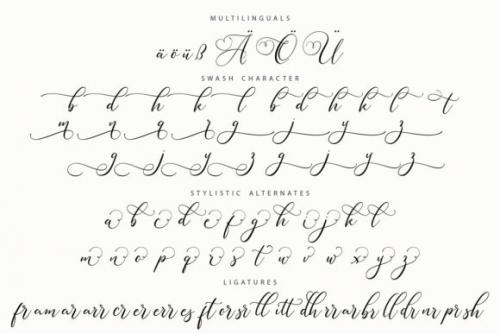 MULTILINGUALS
ä ö ü ß Ä Ö Ü
SWASH CHARACTER
b d h k l b d h k l t
m n q g j y z
g j y z g j y z
STYLISTIC ALTERNATES
a b c d e f g h i j k l
m n o p q r s t u v w x y z
LIGATURES
fr am ar arr cr er err es ft or sr ll itt dh rr ar br ll dr nr pr sh